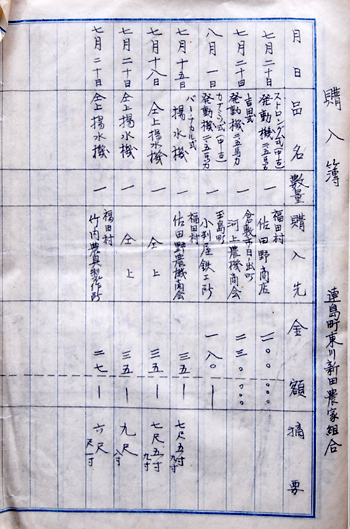 購入簿
連島町東川新田農家組合
月日 品名 数量 購入先 金額 摘要
七月二十日 ストロング式(中古)発動機 二、五馬力 一 福田村 佐田野商店 一〇〇 〇〇
七月二十日 吉田式 発動機 二五馬力 一 倉敷市日ノ出町 河上農機商会 二三〇 〇〇
八月一日 (中古) 発動機 二馬力 一 玉島町 小別屋鉄工所 一八〇 ー
七月十五日 バーチカル式 揚水機 一 福田村 佐田野農機商会 三五 ー 七尺五寸 九寸
七月十八日 仝上揚水機 一 仝上 三五 ー 七尺五寸 九寸
七月二十日 仝上揚水機 一 仝上 三五 ー 九尺 八寸
七月二十日 仝上揚水機 一 福田村 竹内農具製作所 二七 ー 六尺 尺一寸